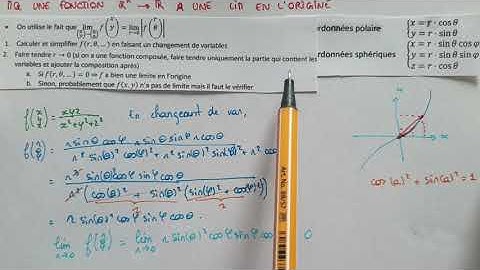 MQ UNE FONCTION ℝⁿ → ℝ A UNE LIM EN L'ORIGINE
On utilise le fait que lim f(x y) = lim |f(r θ)|
1. Calculer et simplifier f(r, θ, …) en faisant un changement de variables
2. Faire tendre r → 0 (si on a une fonction composée, faire tendre uniquement la partie qui contient les
variables et ajouter la composition après)
a. Si f(r, θ, …) = 0 ⇒ f a bien une limite en l'origine
b. Sinon, probablement que f(x, y) n'a pas de limite mais il faut le vérifier
ordonnées polaire {x = r · cos θ
y = r · sin θ
ordonnées sphériques {x = r · sin θ cos φ
y = r · sin θ sin φ
z = r · cos θ
f(x y z) = xyz / x²+y²+z² En changeant de var,
= r sinθ cosφ r sinθ sinφ r cosθ
r² sin(θ)² cos(φ)² + r² sin(θ)² sin(φ)² + r² cos
= r³ sin(θ)² cosφ sinφ cosθ
r² (cos(θ)² + sin(θ)² (sin(φ)² + cos(φ)²))
= r sin(θ)² cosφ sinφ cosθ.
cos(a)² + sin(a)² = 1
lim r→0 = lim r→0 r sin(θ)² cosφ sinφ 0